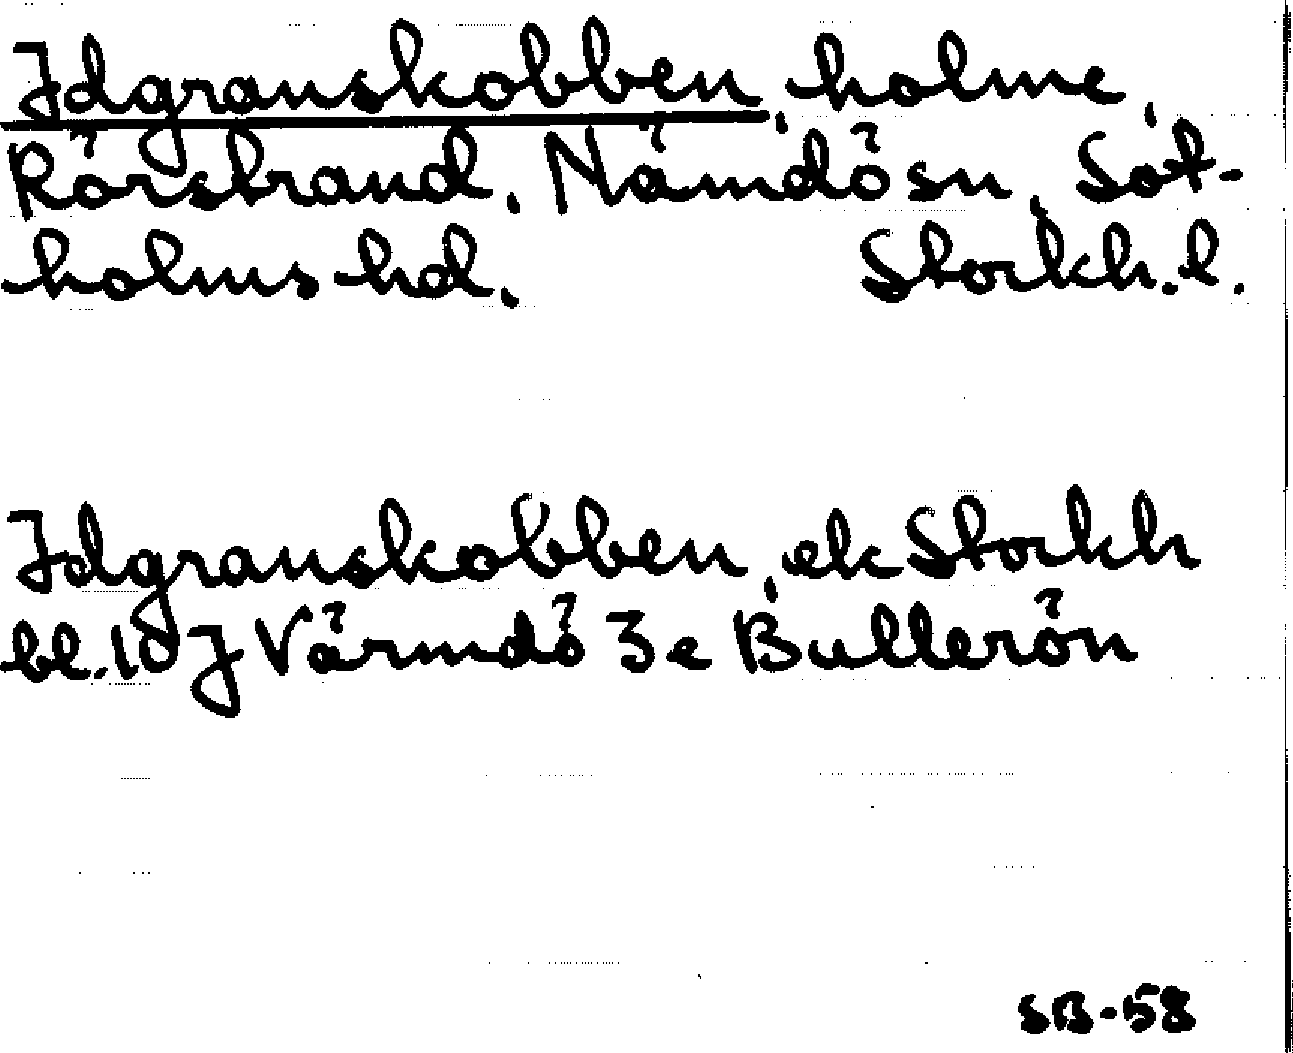 Idgranskobben, holme,
Rörstrand, Nämdö sn, Sot-
holms hd. Stockh. l.
Idgranskobben, ek Stockh
bl. 10 J Värmdö 3 e Bullerön
SB-58